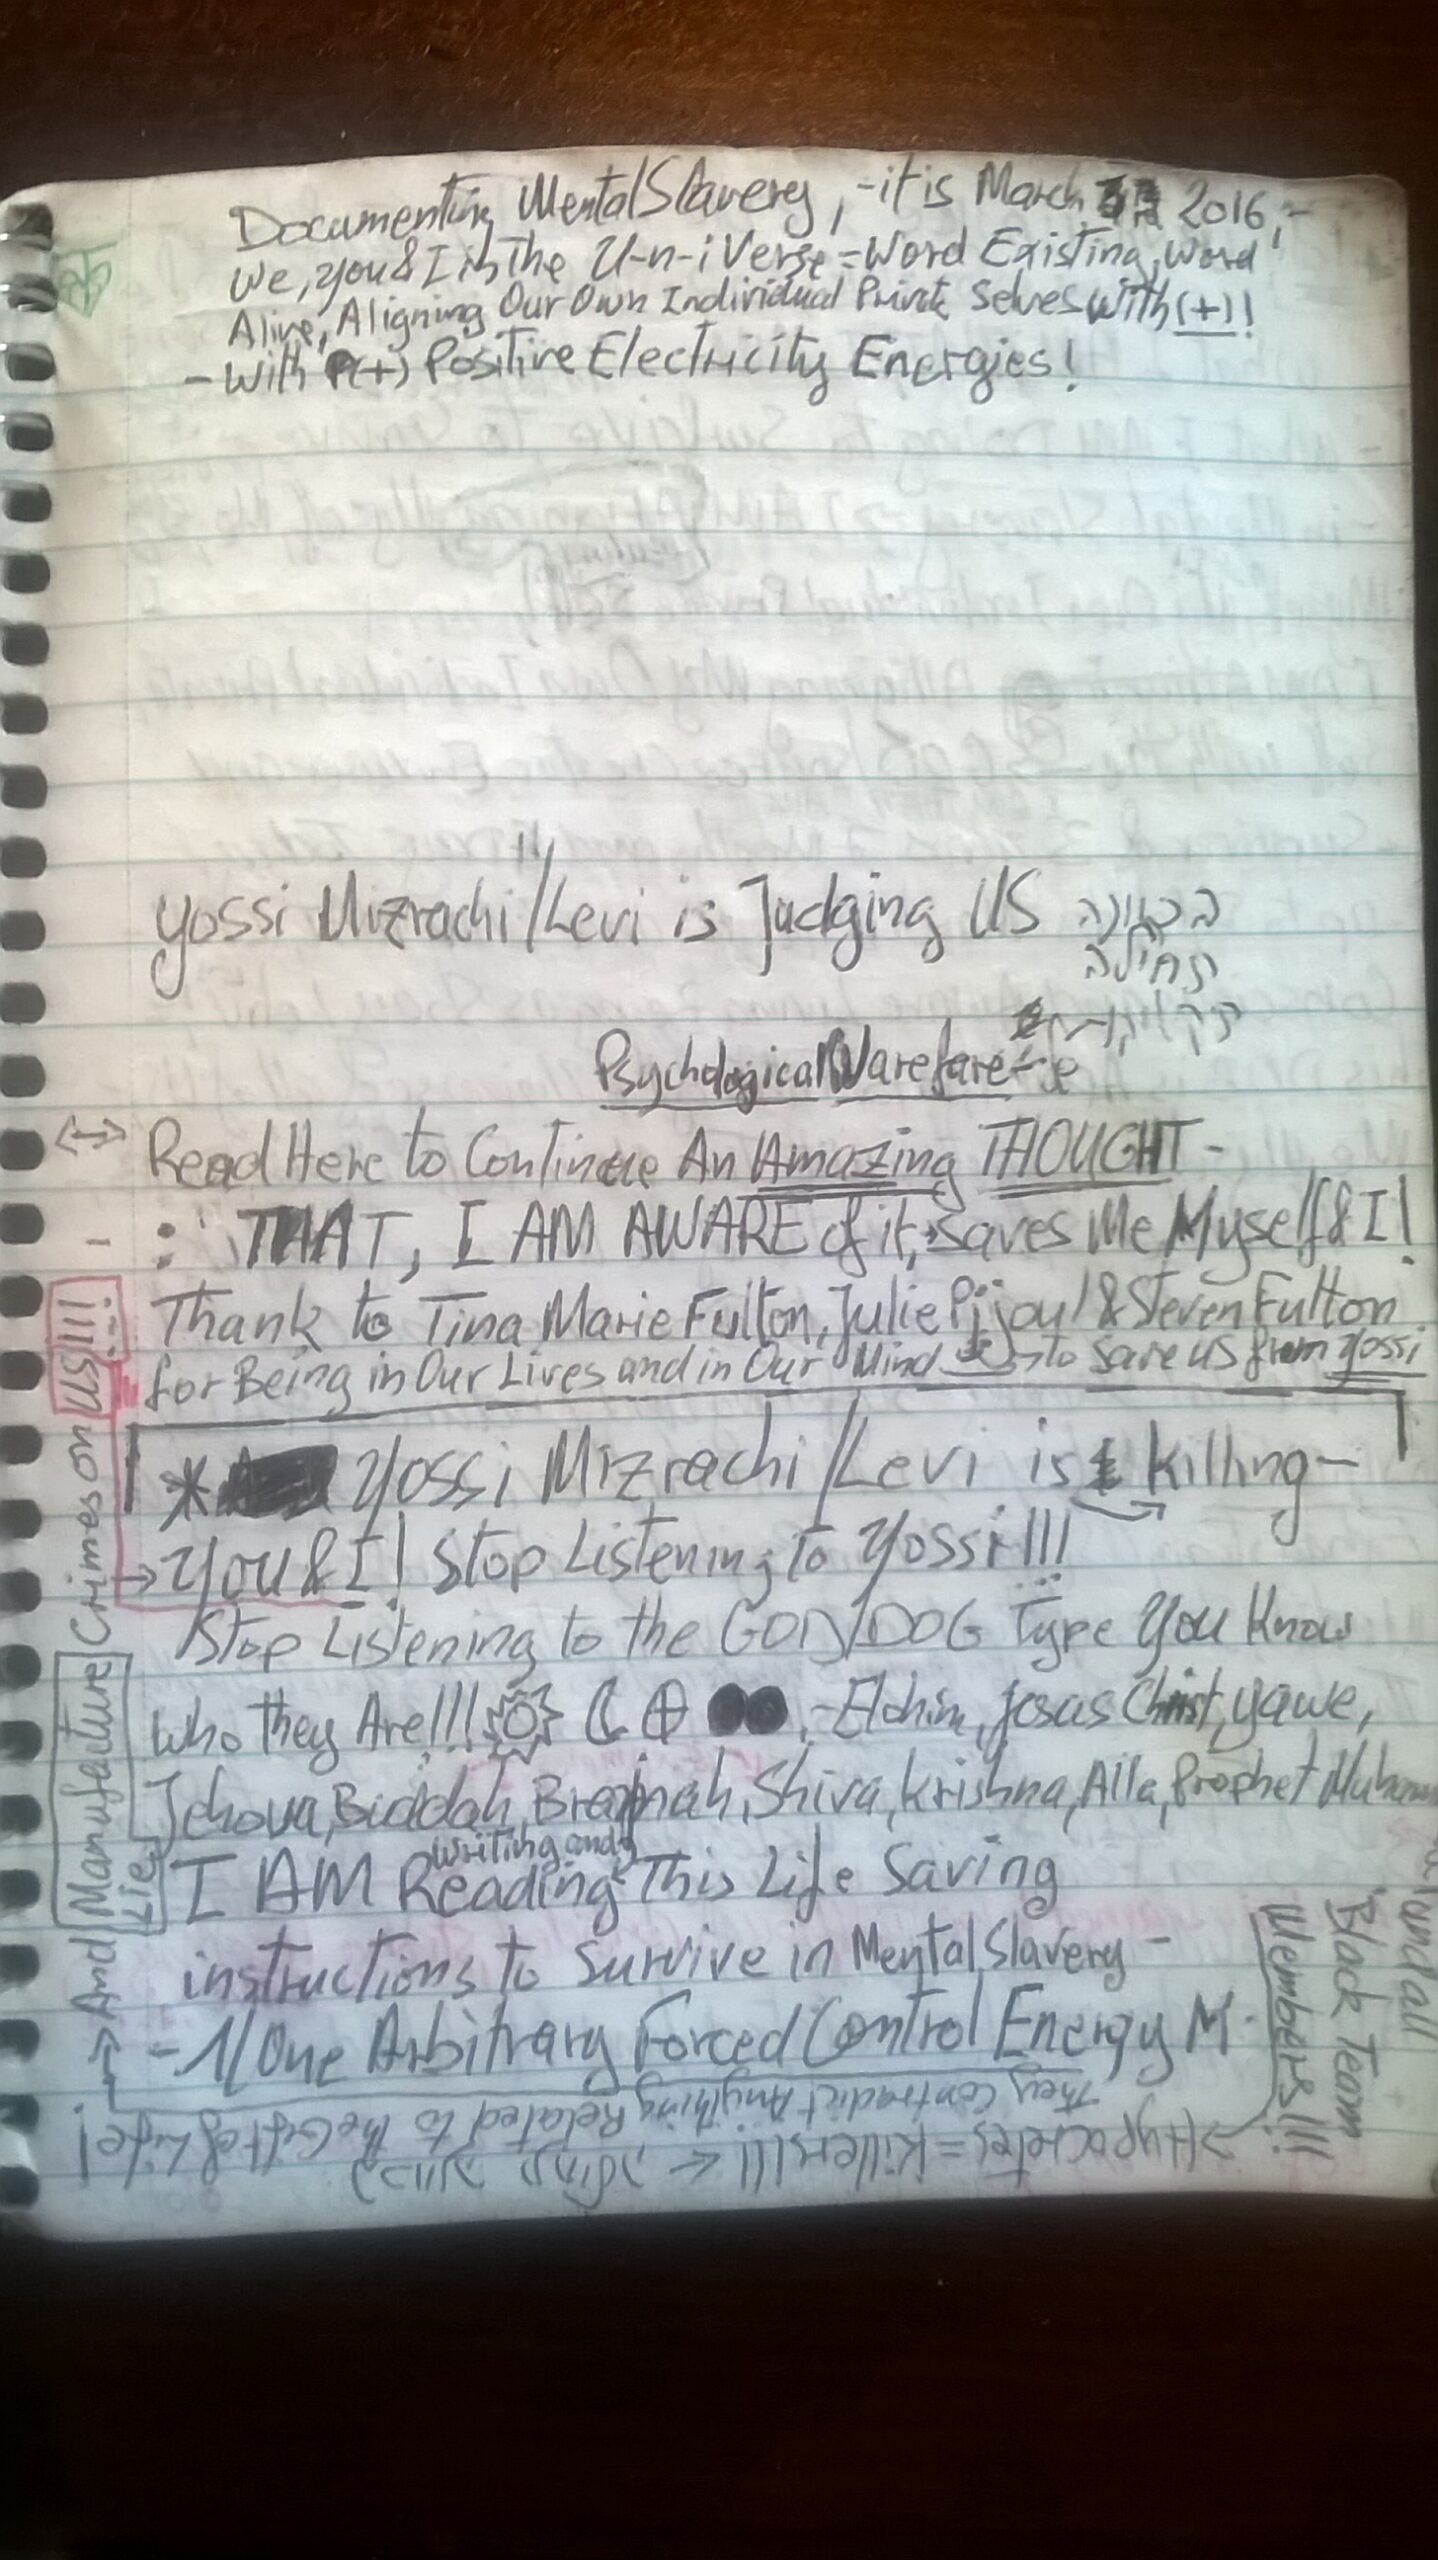 Documenting Mental Slavery, - it is March 2016,-
We, you & I in The U-n-i Verse = Word Existing, Word
Alive, Aligning Our Own Individual Private Selves with (+)!
- With (+) Positive Electricity Energies!
Yossi Mizrachi/Levi is Judging US בכוונה
תחילה
Psychological Warefare
<-> Read Here to Continue An Amazing THOUGHT -
: THAT, I AM AWARE of it, saves Me Myself & I!
Thank to Tina Marie Fulton, Julie Pijoul & Steven Fulton
for Being in Our Lives and in Our Mind to save us from Yossi
* Yossi Mizrachi/Levi is killing -
→ You & I! Stop Listening to Yossi!!!
Stop Listening to the GOD/DOG Type You Know
Who they Are!!! -Elohim, Jesus Christ, Yawe,
Jehova, Buddah, Shiva, Krishna, Alla, Prophet
writing and
I AM Reading This Life Saving
instructions to Survive in Mental Slavery -
- 1/One Arbitrary Forced Control Energy M
They Contradict Anything Related to The Gift of Life!
Hypocretes = Killers!!! ←
and all
Black Team
Members!!!
And Manufacture Crimes on US!!!
Lie,